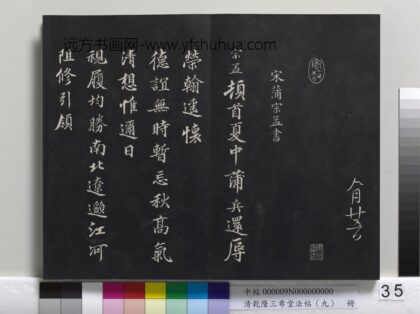 远方书画网-www.yfshuhua.com
八月廿五
宋蒲宗孟書
宗孟頓首夏中蒲兵還辱
榮翰遥懷
德誼無時暫忘秋高氣
清想惟邇日
視履均勝南北遼邈江河
阻修引領
35
中帖 000009N000000000
清乾隆三希堂法帖（九） 冊